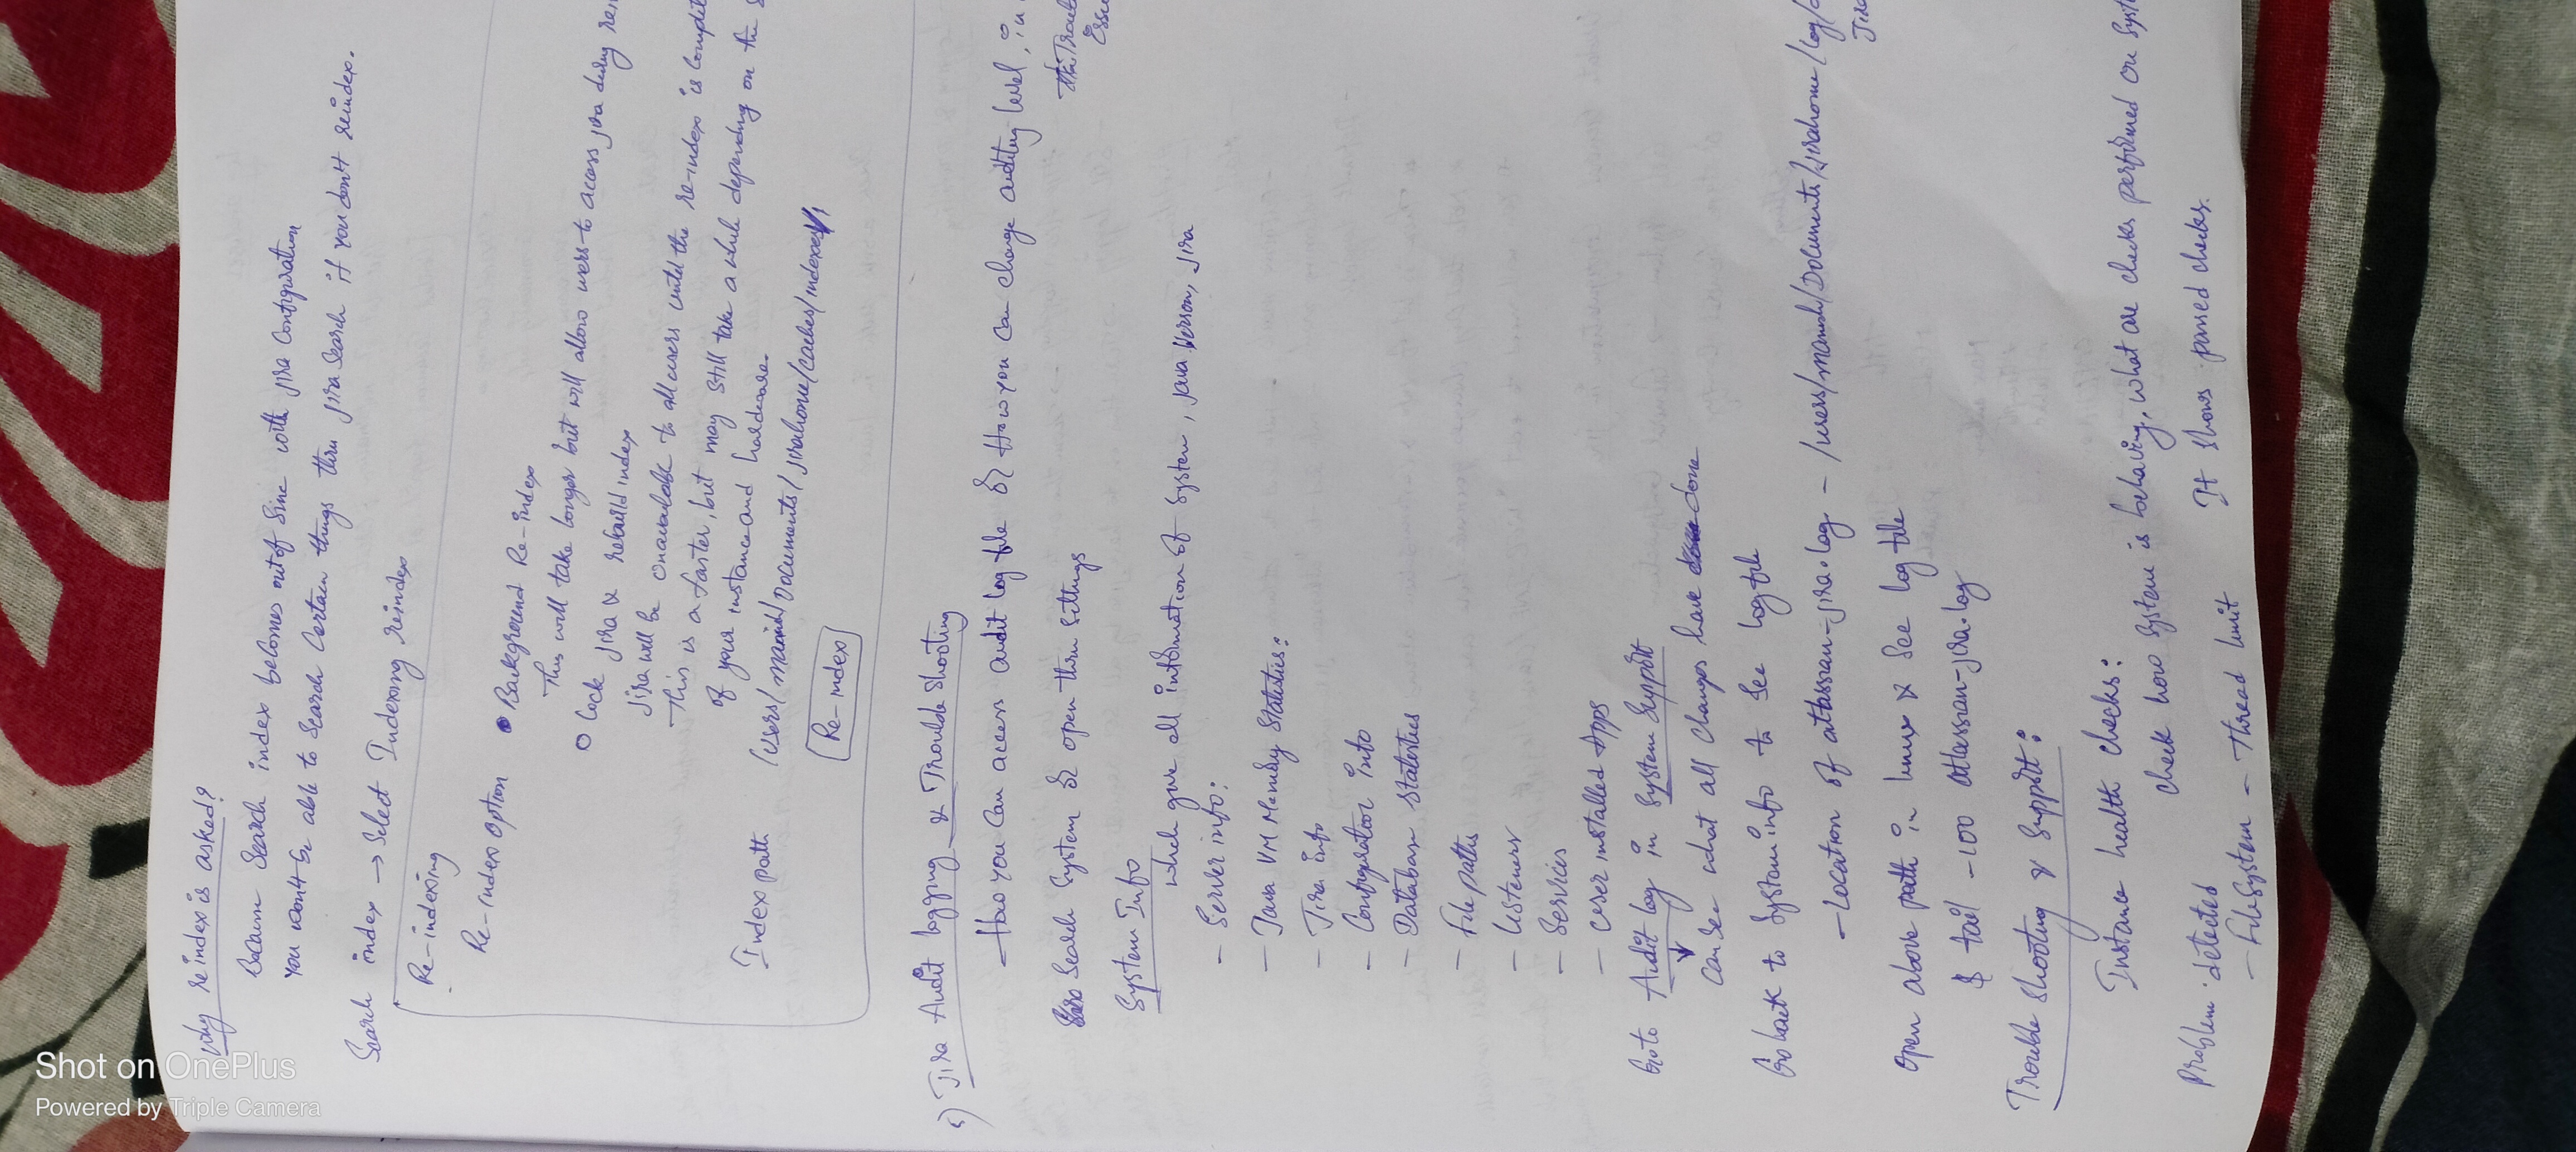 Why reindex is asked?
Because Search index becomes out of Sinc with jira Configuration
You won't be able to Search Certain things thru jira Search if you don't reindex.
Search index → Select Indexing reindex
Re-indexing
Re-index Option
Background Re-index
This will take longer but will allow users to access jira during
Lock jira & rebuild index
Jira will be unavailable to all users until the re-index is
This is a faster, but may still take a while depending on the
of your instance and hardware.
Index path /users/manish/Documents/jirahome/caches/indexes
Re-index
Jira Audit logging & Trouble Shooting
How you Can access audit log file & How you can change auditing level, in
Search System & open thru Settings
System Info
which give all information of System, java version, jira
- Server info:
- Java VM Memory Statistics:
- Jira info
- Configuration info
- Database Statistics
- File paths
- Listeners
- Services
- User installed Apps
Go to Audit log in System Support
Can See what all changes have done
Go back to System info to See log file
- Location of atlassian-jira.log - /users/manish/Documents/jirahome/log/
Open above path in linux & See log file
$ tail -100 atlassian-jira.log
Trouble Shooting & Support:
Instance health checks:
check how System is behaving, what are checks performed on
It shows passed checks.
Problem detected
- FileSystem - Thread limit
Shot on OnePlus
Powered by Triple Camera